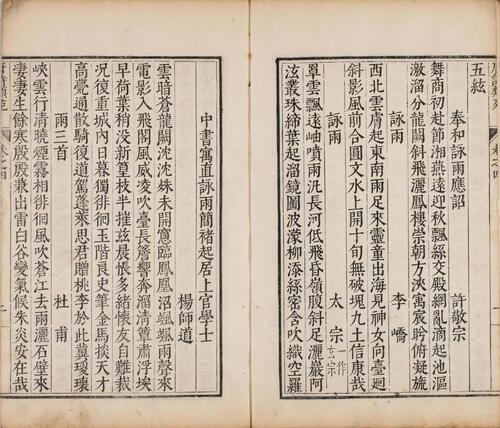 五絃
奉和詠雨應詔 許敬宗
舞商初赴節湘燕遠迎秋飄絲交殿網亂滴起池漚
激溜分龍闕斜飛灑鳳樓崇朝方浹寓宸眄俯凝旒
詠雨 李嶠
西北雲膚起東南雨足來靈童出海見神女向臺迴
斜影風前合圓文水上開十旬無破塊九土信康哉
詠雨 太宗 一作玄宗
罩雲飄遠岫噴雨汎長河低飛昏嶺腹斜足灑巖阿
泫叢珠締葉起溜鏡圖波濛柳添絲密含吹織空羅
中書寓直詠雨簡褚起居上官學士
楊師道
雲暗蒼龍闕沈沈殊未開窻臨鳳凰沼颯颯雨聲來
電影入飛閣風威凌吹臺長簷響奔溜清簟肅浮埃
早荷葉稍沒新篁枝半摧茲晨悵多緒懷友自難裁
況復重城內日暮獨徘徊玉階良史筆金馬掞天才
高甍通散騎復道駕蓬萊思君贈桃李於此冀瓊瓌
雨三首 杜甫
峽雲行清曉煙霧相徘徊風吹蒼江去雨灑石壁來
淒淒生餘寒殷殷兼出雷白谷變氣候朱炎安在哉
卷之四